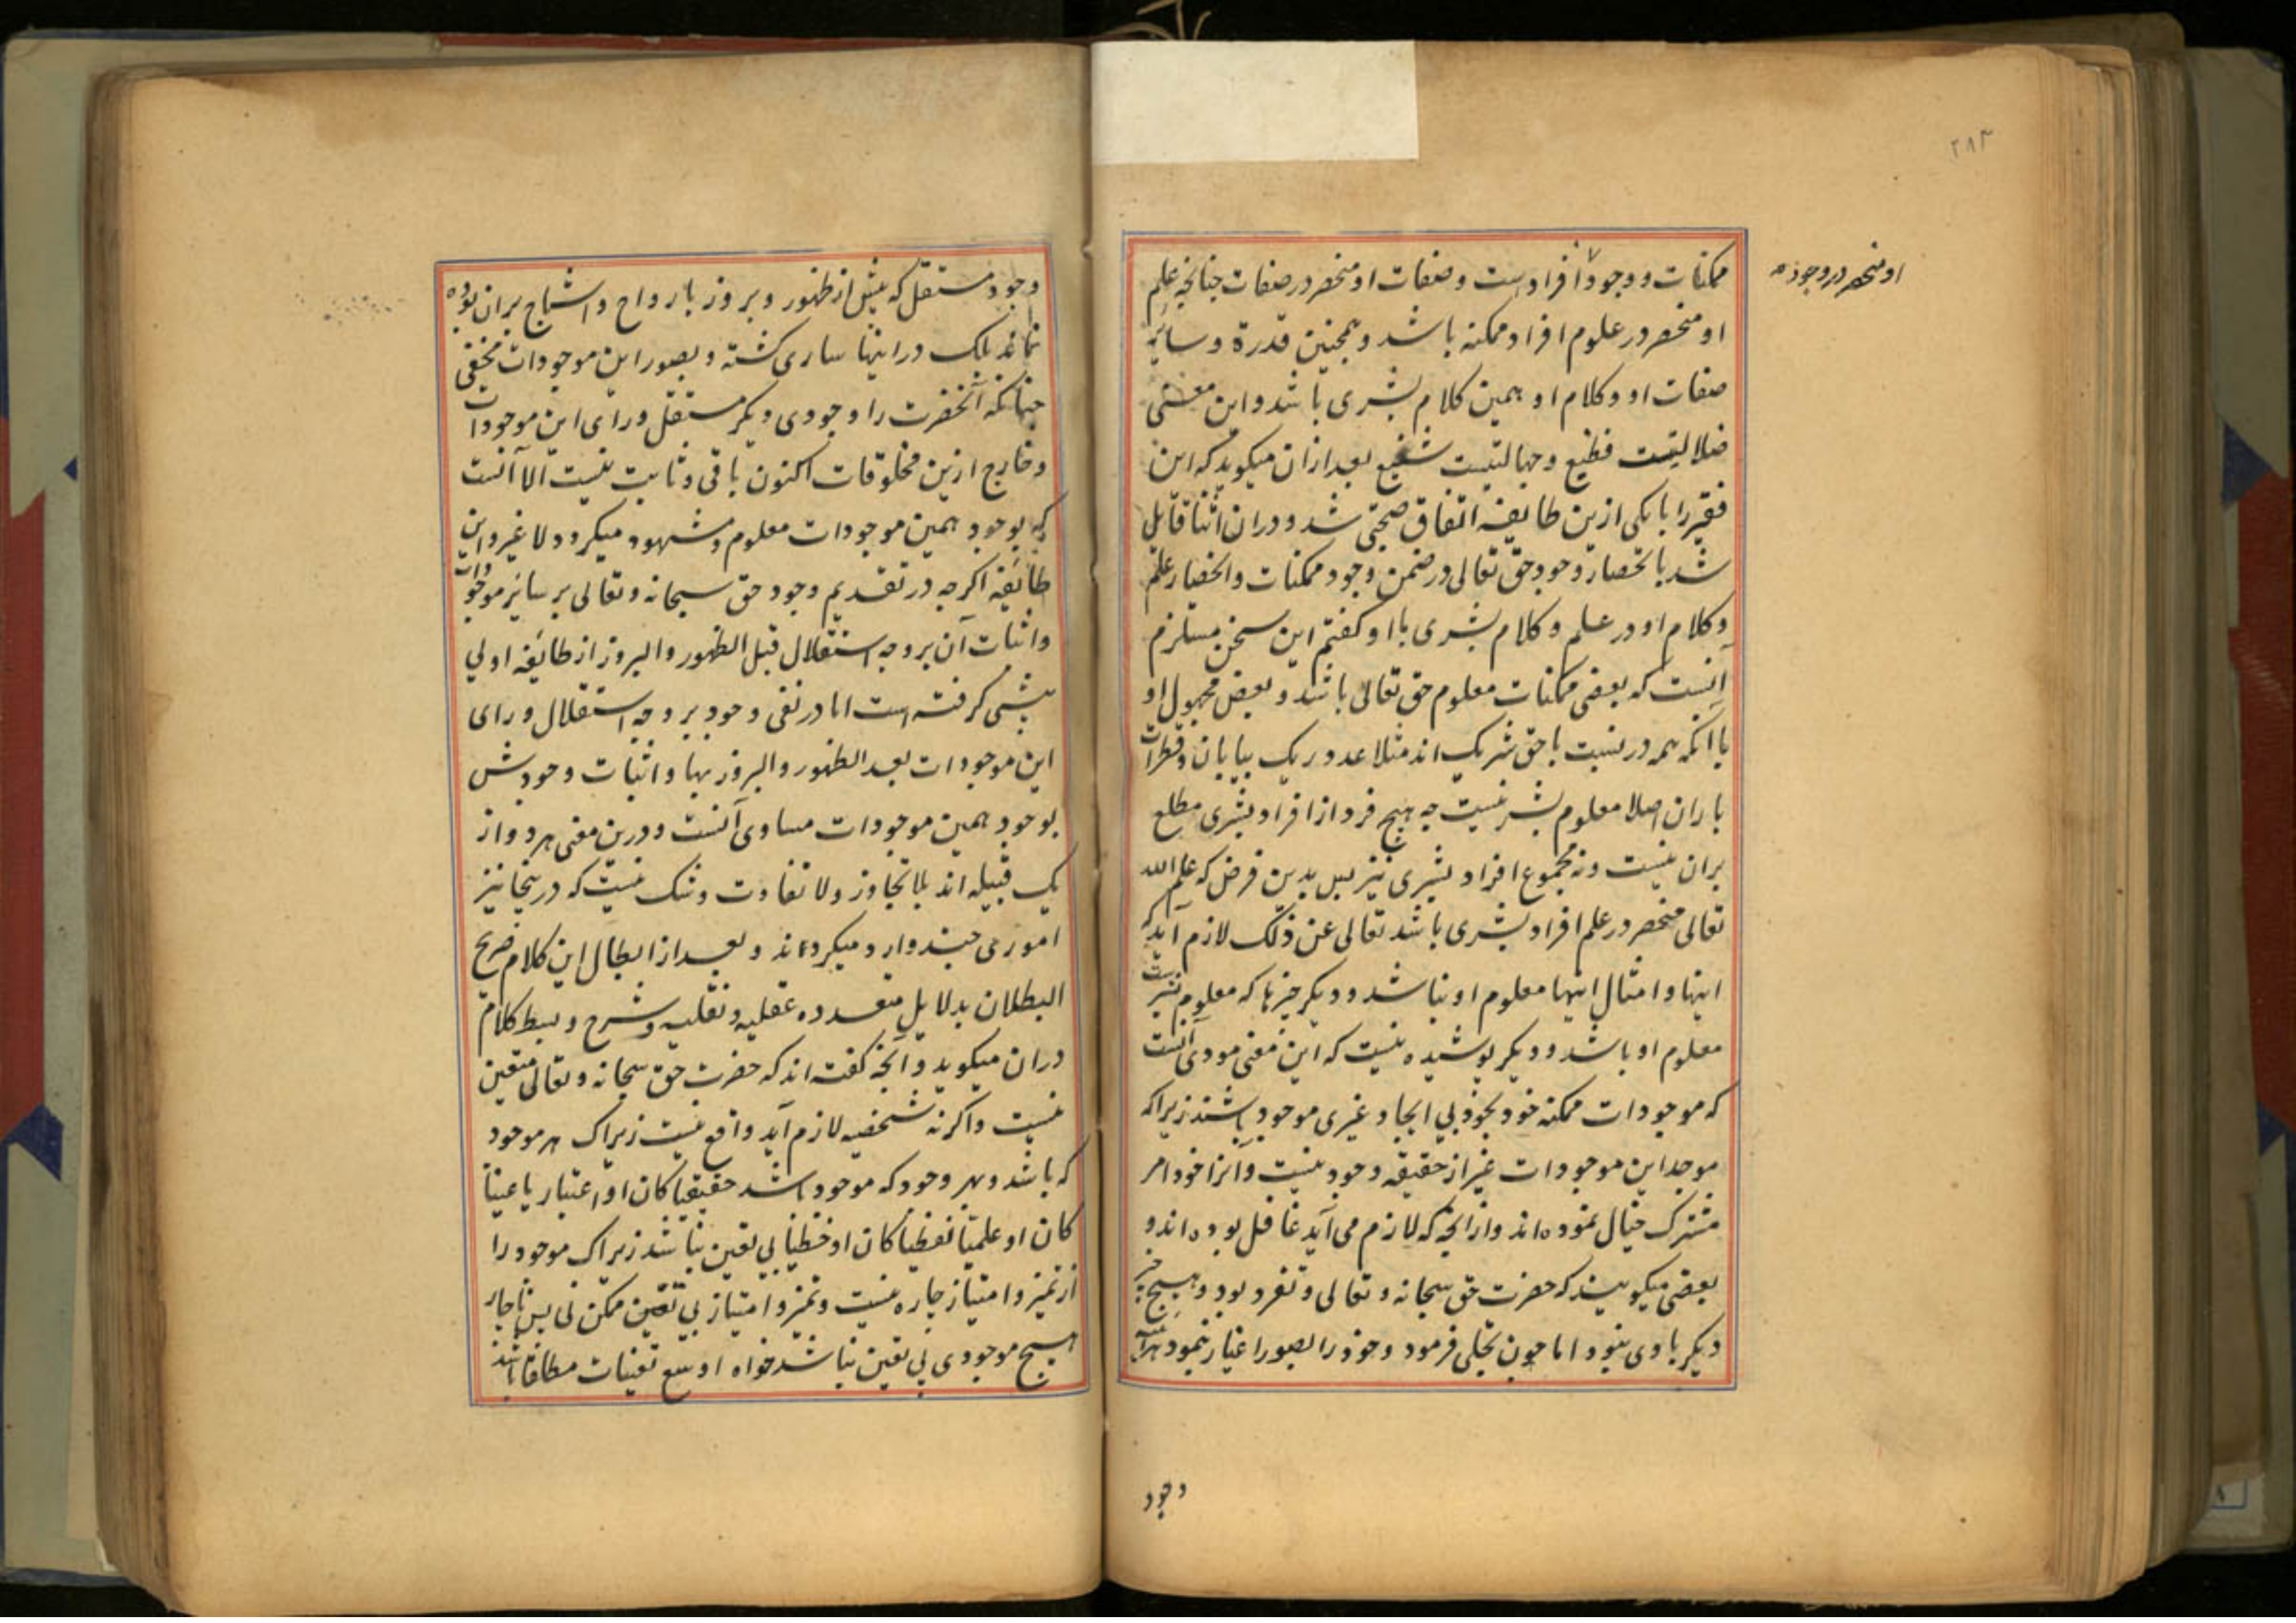 ۲۸۳
او منحصر در وجود
ممکنات و وجود افراد است و صفات او منحصر در صفات چنانچه علم
او منحصر در علوم افراد ممکنه باشد و همچنین قدرة و سایر
صفات او و کلام او همین کلام بشری باشد و این معنی
ضلالتیست فظیع و جهالتیست شنیع بعد ازان میکوید که این
فقیر را با یکی ازین طایفه اتفاق صحبتی شد و دران اثنا قایل
شد بانحصار وجود حق تعالی در ضمن وجود ممکنات و انحصار علم
و کلام او در علم و کلام بشری با او کفتم این سخن مستلزم
آنست که بعضی ممکنات معلوم حق تعالی باشد و بعض مجهول او
با آنکه همه در نسبت با حق شریک اند مثلا عدد ریک بیابان و قطرات
باران اصلا معلوم بشر نیست چه هیچ فرد از افراد بشری مطلع
بران نیست و نه مجموع افراد بشری نیز پس بدین فرض که علم الله
تعالی منحصر در علم افراد بشری باشد تعالی عن ذلک لازم آید که
اینها و امثال اینها معلوم او نباشد و دیکر چیزها که معلوم بشرست
معلوم او باشد و دیکر پوشیده نیست که این معنی مودی آنست
که موجودات ممکنه خود بخود بی ایجاد غیری موجود باشند زیراکه
موجد این موجودات غیر از حقیقه وجود نیست و آنرا خود امر
مشترک خیال نموده اند و ازانچه که لازم می آید غافل بوده اند و
بعضی میکویند که حضرت حق سبحانه و تعالی و تفرد بود و هیچ چیز
دیکر با وی نبود اما چون تجلی فرمود و خود را بصور اغیار نمود
وجود
وجود مستقل که پیش از ظهور و بروز بارواح و اشباح بران بوده
نماند بلک در اینها ساری کشته و بصور این موجودات مختفی
چنانکه آنحضرت را وجودی دیکر مستقل ورای این موجودات
و خارج ازین مخلوقات اکنون باقی و ثابت نیست الا آنست
که بوجود همین موجودات معلوم و مشهود میکردد لا غیر و این
طائفه اکرچه در تقدیم وجود حق سبحانه و تعالی بر سائر موجودات
و اثبات آن بر وجه استقلال قبل الظهور و البروز از طائفه اولی
پیشی کرفته است اما در نفی وجود بر وجه استقلال ورای
این موجودات بعد الظهور و البروز بها و اثبات وجودش
بوجود همین موجودات مساوی آنست و درین معنی هر دو از
یک قبیله اند بلا تجاوز و لا تفاوت و شک نیست که درینجا نیز
اموری چند وارد میکرداند و بعد از ابطال این کلام صریح
البطلان بدلایل متعدده عقلیه و نقلیه و شرح و بسط کلام
دران میکوید و آنچه کفته اند که حضرت حق سبحانه و تعالی متعین
نیست و اکرنه شخصیه لازم آید واقع نیست زیراک هر موجود
که باشد و بهر وجود که موجود باشد حقیقیا کان او اعتباریا عینیا
کان او علمیا لفظیا کان او خطیا بی تعین نباشد زیراک موجود را
از تمیز و امتیاز چاره نیست و تمیز و امتیاز بی تعین ممکن نی پس ناچار
هیچ موجودی بی تعین نباشد خواه او منبع تعینات مطلقا باشد